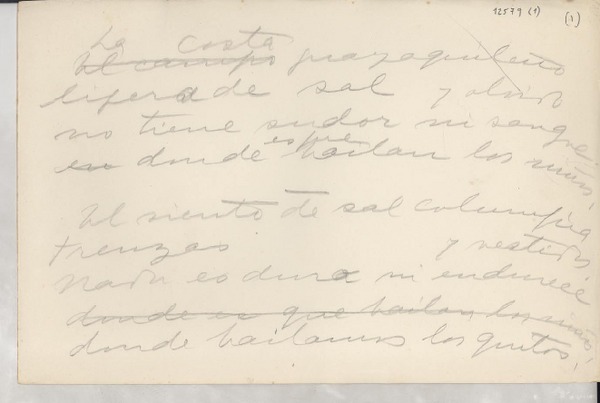 12579 (1) (1)
La costa
El campo guayaquileño
ligera de sal y olvido
no tiene sudor ni sangre
es que
en donde bailan los niños,
El viento de sal columpia
trenzas y vestidos
nada es dura ni endurece
donde es que bailan los niños,
donde bailamos los